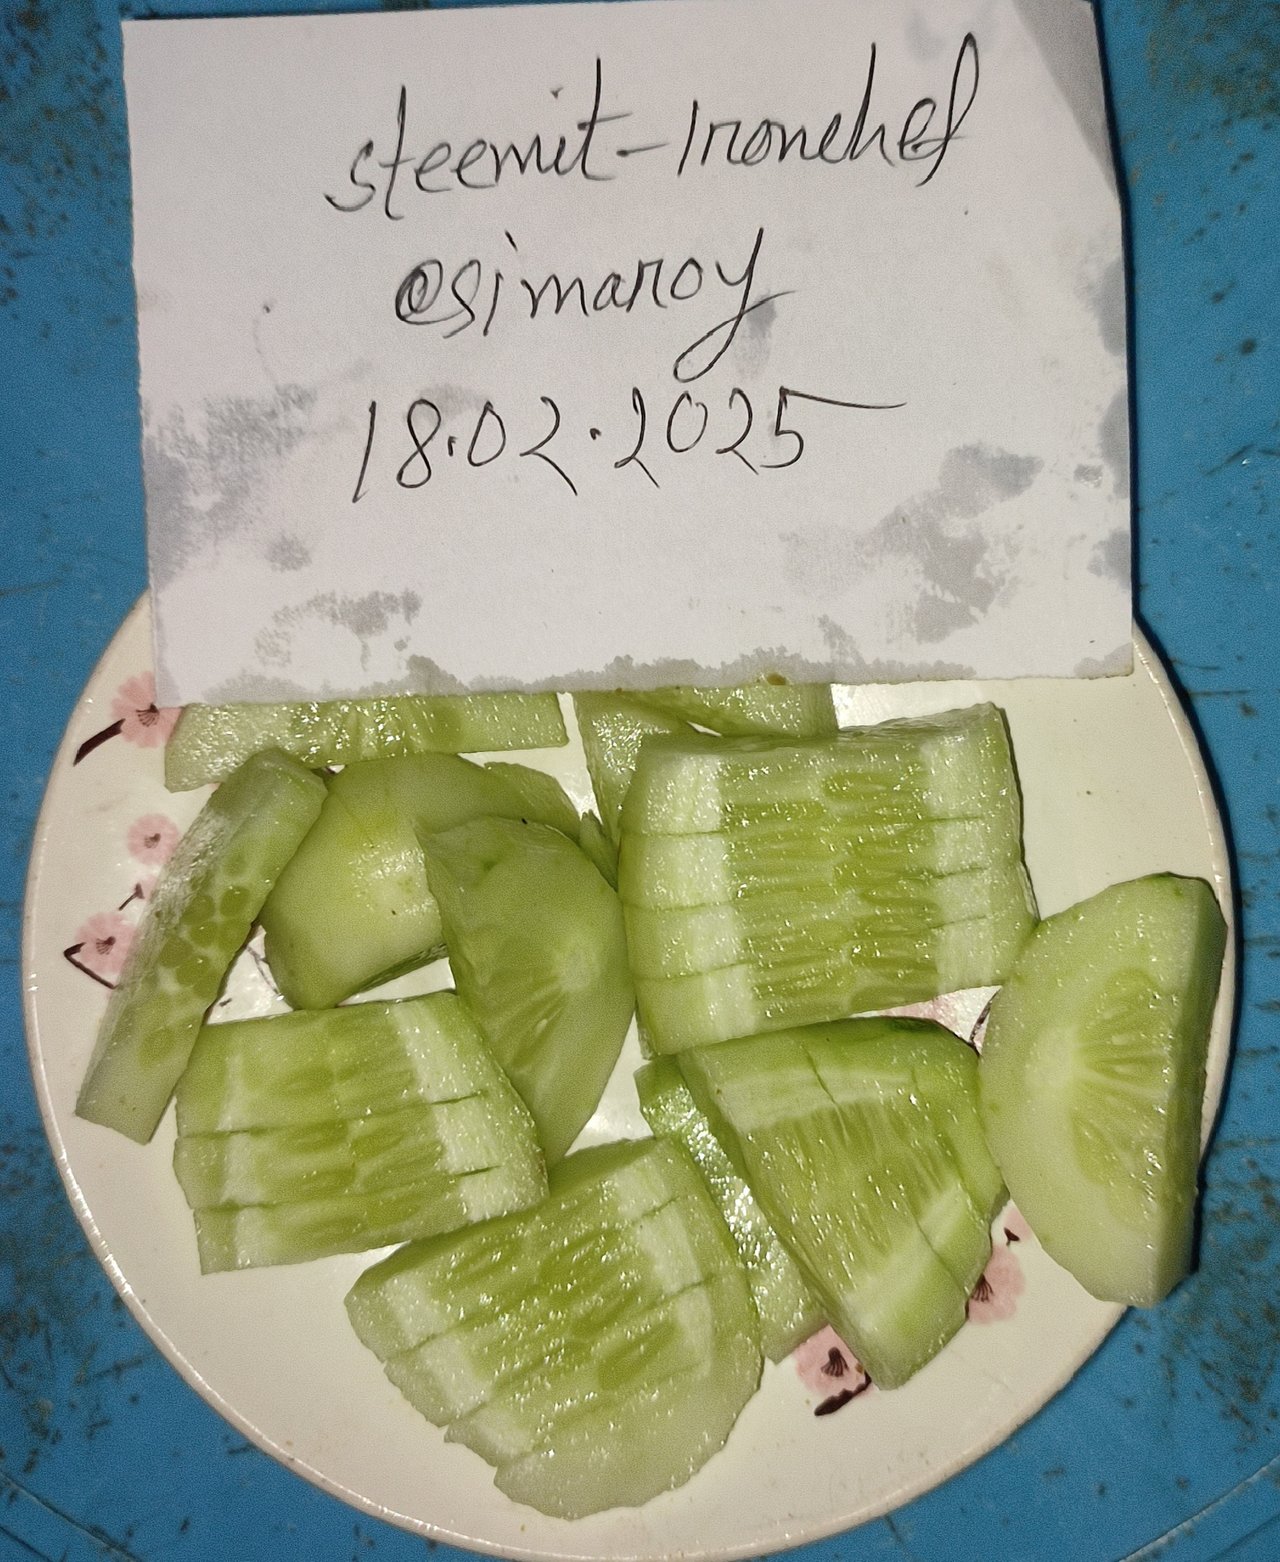 steemit-Ironchef
@simaroy
18.02.2025